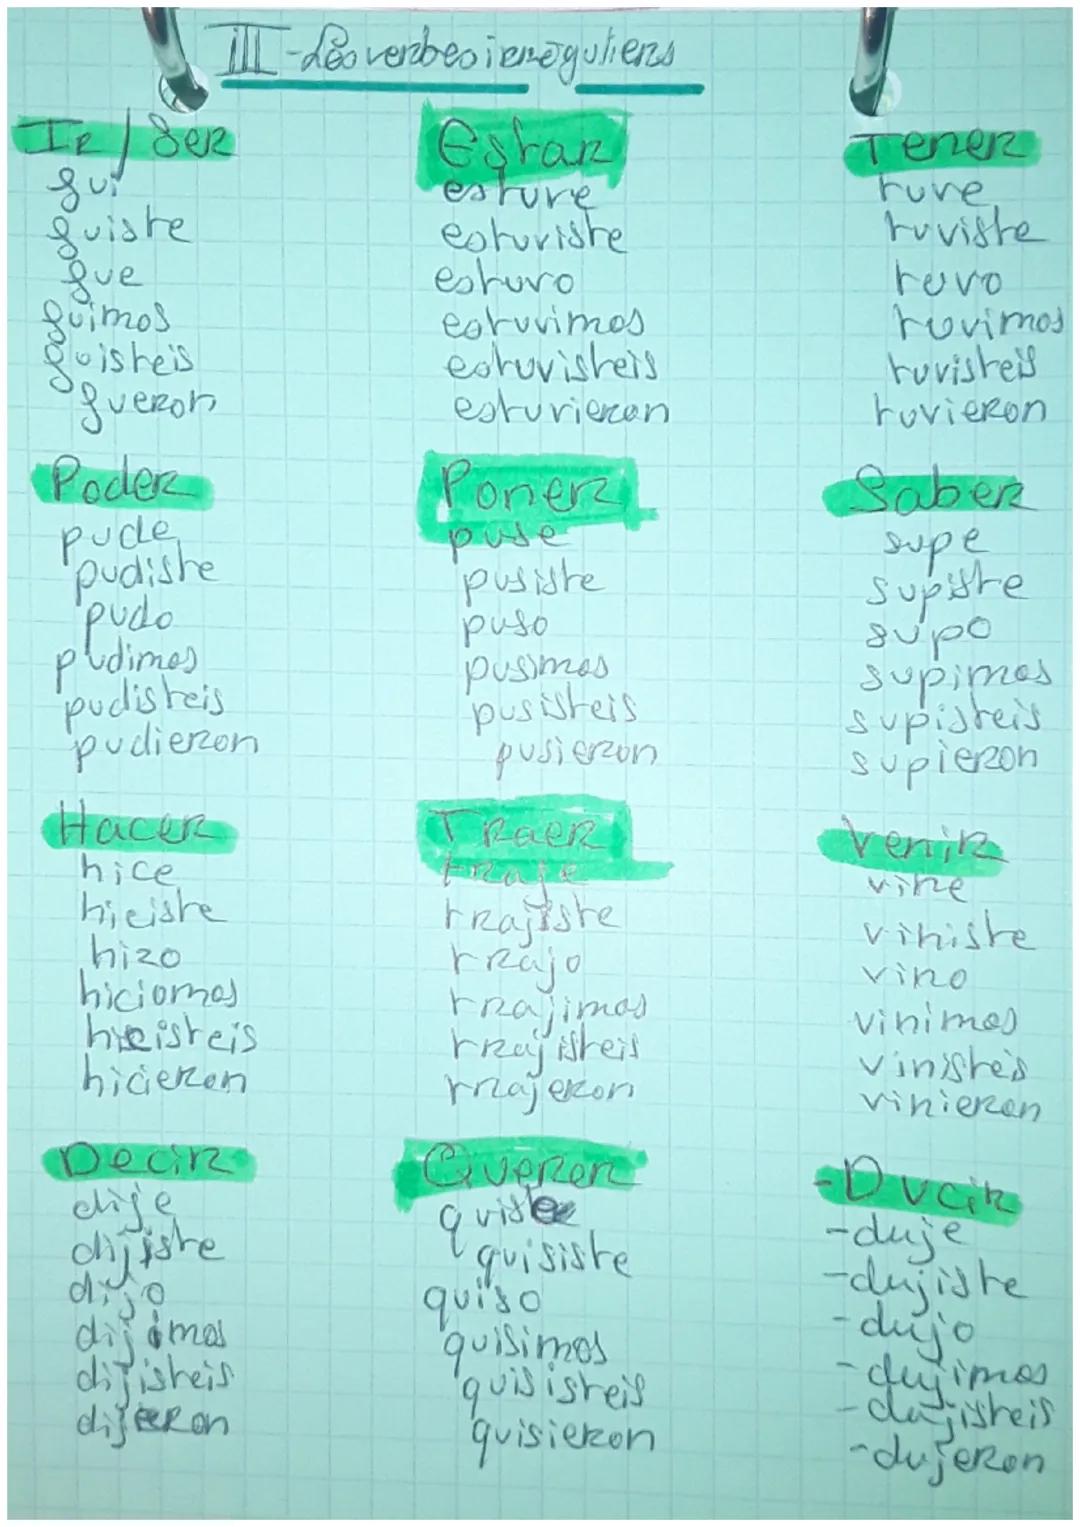 III - Les verbes irréguliers
Ir / Ser
fui
fuiste
fue
fuimos
fuisteis
fueron
Estar
estuve
estuviste
estuvo
estuvimos
estuvisteis
estuvieron
Tener
tuve
tuviste
tuvo
tuvimos
tuvisteis
tuvieron
Poder
pude
pudiste
pudo
pudimos
pudisteis
pudieron
Poner
puse
pusiste
puso
pusimos
pusisteis
pusieron
Saber
supe
supiste
supo
supimos
supisteis
supieron
Hacer
hice
hiciste
hizo
hiciomos
hicisteis
hicieron
Traer
traje
trajiste
trajo
trajimos
trajisteis
trajeron
Venir
vine
viniste
vino
vinimos
vinisteis
vinieron
Decir
dije
dijiste
dijo
dijimos
dijisteis
dijeron
Querer
quise
quisiste
quiso
quisimos
quisisteis
quisieron
-Ducir
-duje
-dujiste
-dujo
-dujimos
-dujisteis
-dujeron